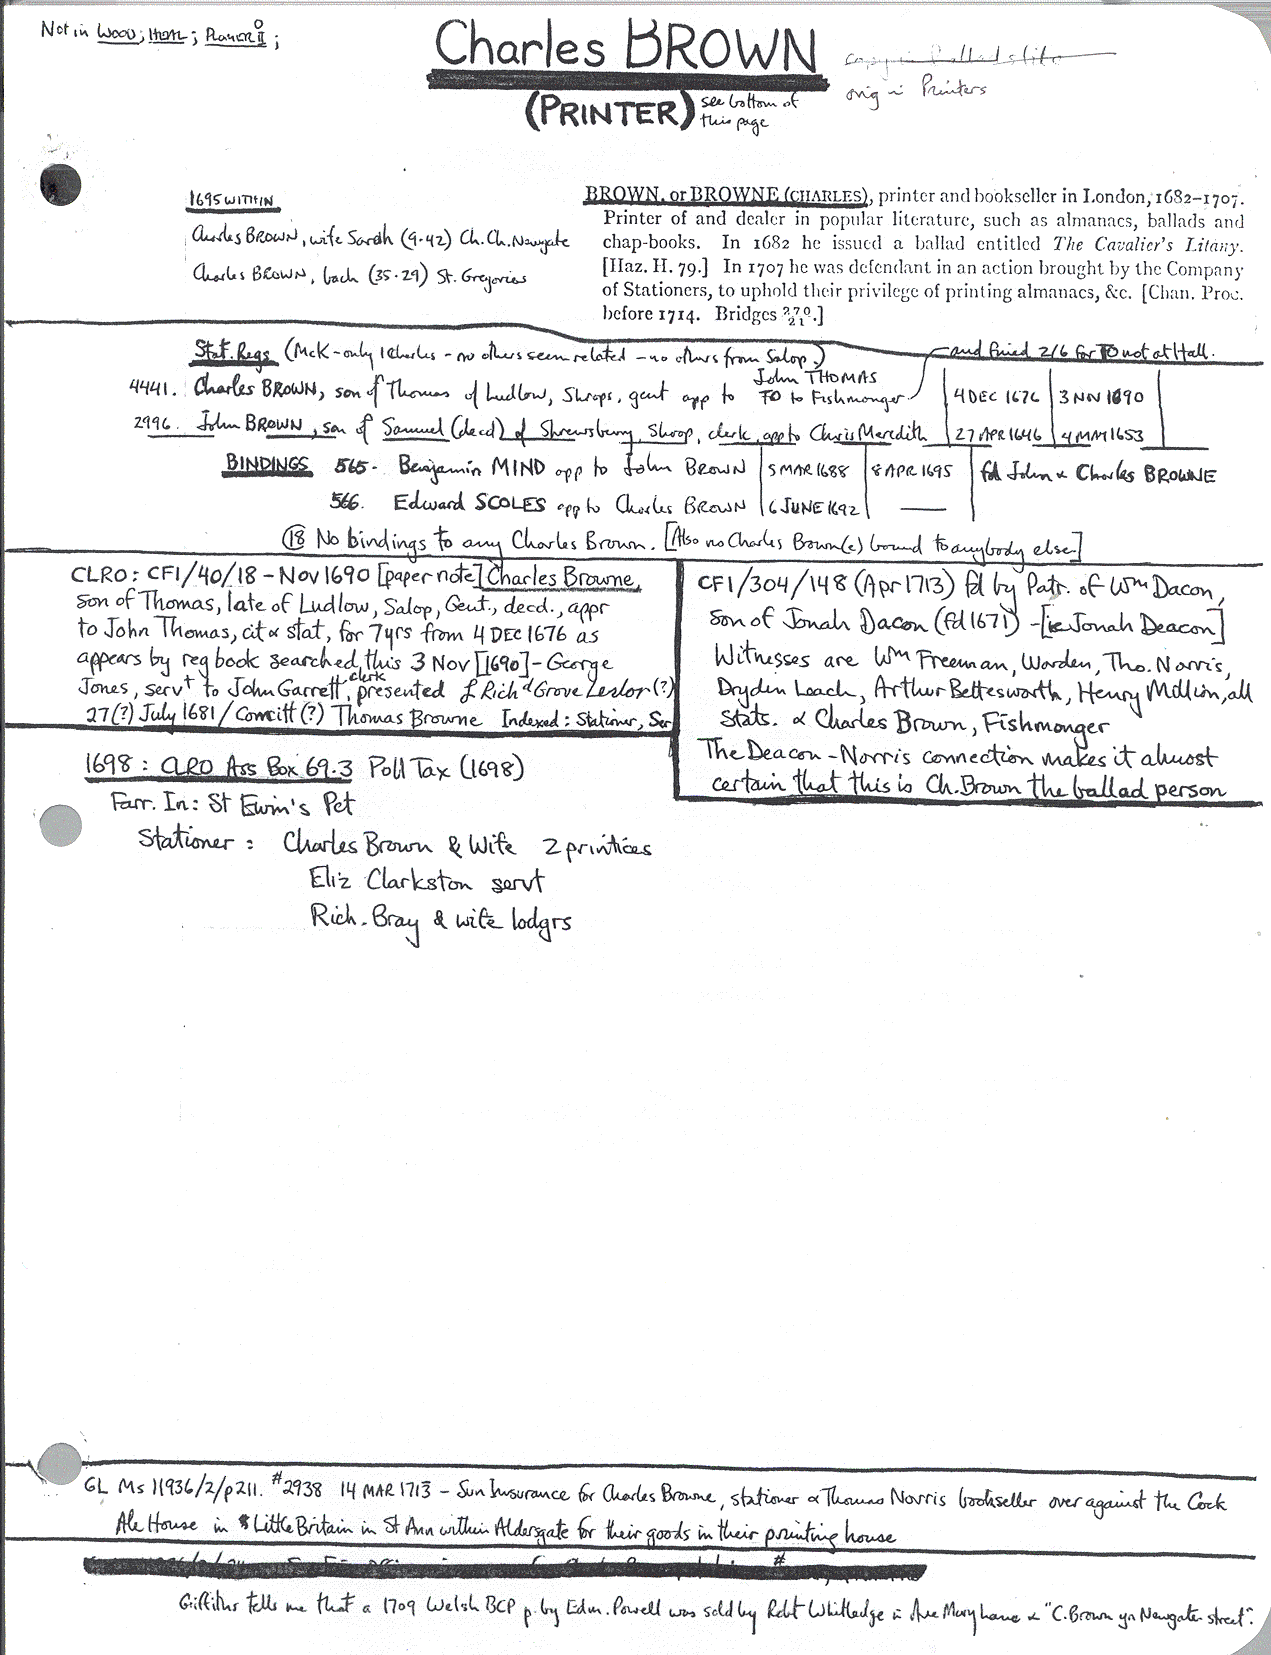 Not in WOOD; HEAL; PLOMER II;
Charles BROWN
copy in Ballads file
orig in Printers
(PRINTER) see bottom of
this page
1695 WITHIN
Charles BROWN, wife Sarah (9.42) Ch. Ch. Newgate
Charles BROWN, bach (35.29) St. Gregories
BROWN, or BROWNE (CHARLES), printer and bookseller in London, 1682–1707.
Printer of and dealer in popular literature, such as almanacs, ballads and
chap-books. In 1682 he issued a ballad entitled The Cavalier's Litany.
[Haz. H. 79.] In 1707 he was defendant in an action brought by the Company
of Stationers, to uphold their privilege of printing almanacs, &c. [Chan. Proc.
before 1714. Bridges 270/21.]
Stat. Regs (McK – only 1 Charles – no others seem related – no others from Salop.)
and fined 2/6 for TO not at Hall.
John THOMAS
4441. Charles BROWN, son of Thomas of Ludlow, Shrops, gent app to TO to Fishmonger 4 DEC 1676 3 NOV 1690
2996. John BROWN, son of Samuel (decd) of Shrewsbury, Shrop, clerk, app to Chris Meredith 27 APR 1646 4 MAY 1653
BINDINGS 565. Benjamin MIND app to John BROWN 5 MAR 1688 8 APR 1695 fd John & Charles BROWNE
566. Edward SCOLES app to Charles BROWN 6 JUNE 1692 —
18 No bindings to any Charles Brown. [Also no Charles Brown(e) bound to anybody else]
CLRO: CF1/40/18 – Nov 1690 [paper note] Charles Browne,
son of Thomas, late of Ludlow, Salop, Gent., decd., appr
to John Thomas, cit & stat, for 7yrs from 4 DEC 1676 as
appears by reg book searched this 3 Nov [1690] – George
Jones, servt to John Garrett, clerk, presented f Richd Grove Leslor(?)
27(?) July 1681 / Comcitt(?) Thomas Browne Indexed: Stationer, Ser
CF1/304/148 (Apr 1713) fd by Patr. of Wm Dacon,
son of Jonah Dacon (fd 1671) – [ie Jonah Deacon]
Witnesses are Wm Freeman, Warden, Tho. Norris,
Dryden Leach, Arthur Bettesworth, Henry Million, all
Stats. & Charles Brown, Fishmonger
The Deacon – Norris connection makes it almost
certain that this is Ch. Brown the ballad person
1698: CLRO Ass Box 69.3 Poll Tax (1698)
Farr. In: St Ewin's Pct
Stationer: Charles Brown & Wife 2 printices
Eliz Clarkston servt
Rich. Bray & wife lodgrs
GL Ms 11936/2/p211. #2938 14 MAR 1713 – Sun Insurance for Charles Browne, stationer & Thomas Norris bookseller over against the Cock
Ale House in Little Britain in St Ann within Aldersgate for their goods in their printing house
Griffiths tells me that a 1709 Welsh BCP p. by Edm. Powell was sold by Robt Whitledge in Ave Mary Lane & "C. Brown yn Newgate-street".